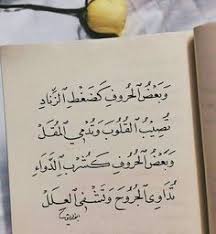 وَبَعْضُ الحُرُوفِ كَضَغْطِ الزِّنَادِ
تُصِيْبُ القُلُوبَ وَتُدْمِي المُقَلْ
وَبَعْضُ الحُرُوفِ كَشُرْبِ الدَّوَاءِ
تُدَاوِي الجُرُوحَ وَتَشْفِي العِلَلْ